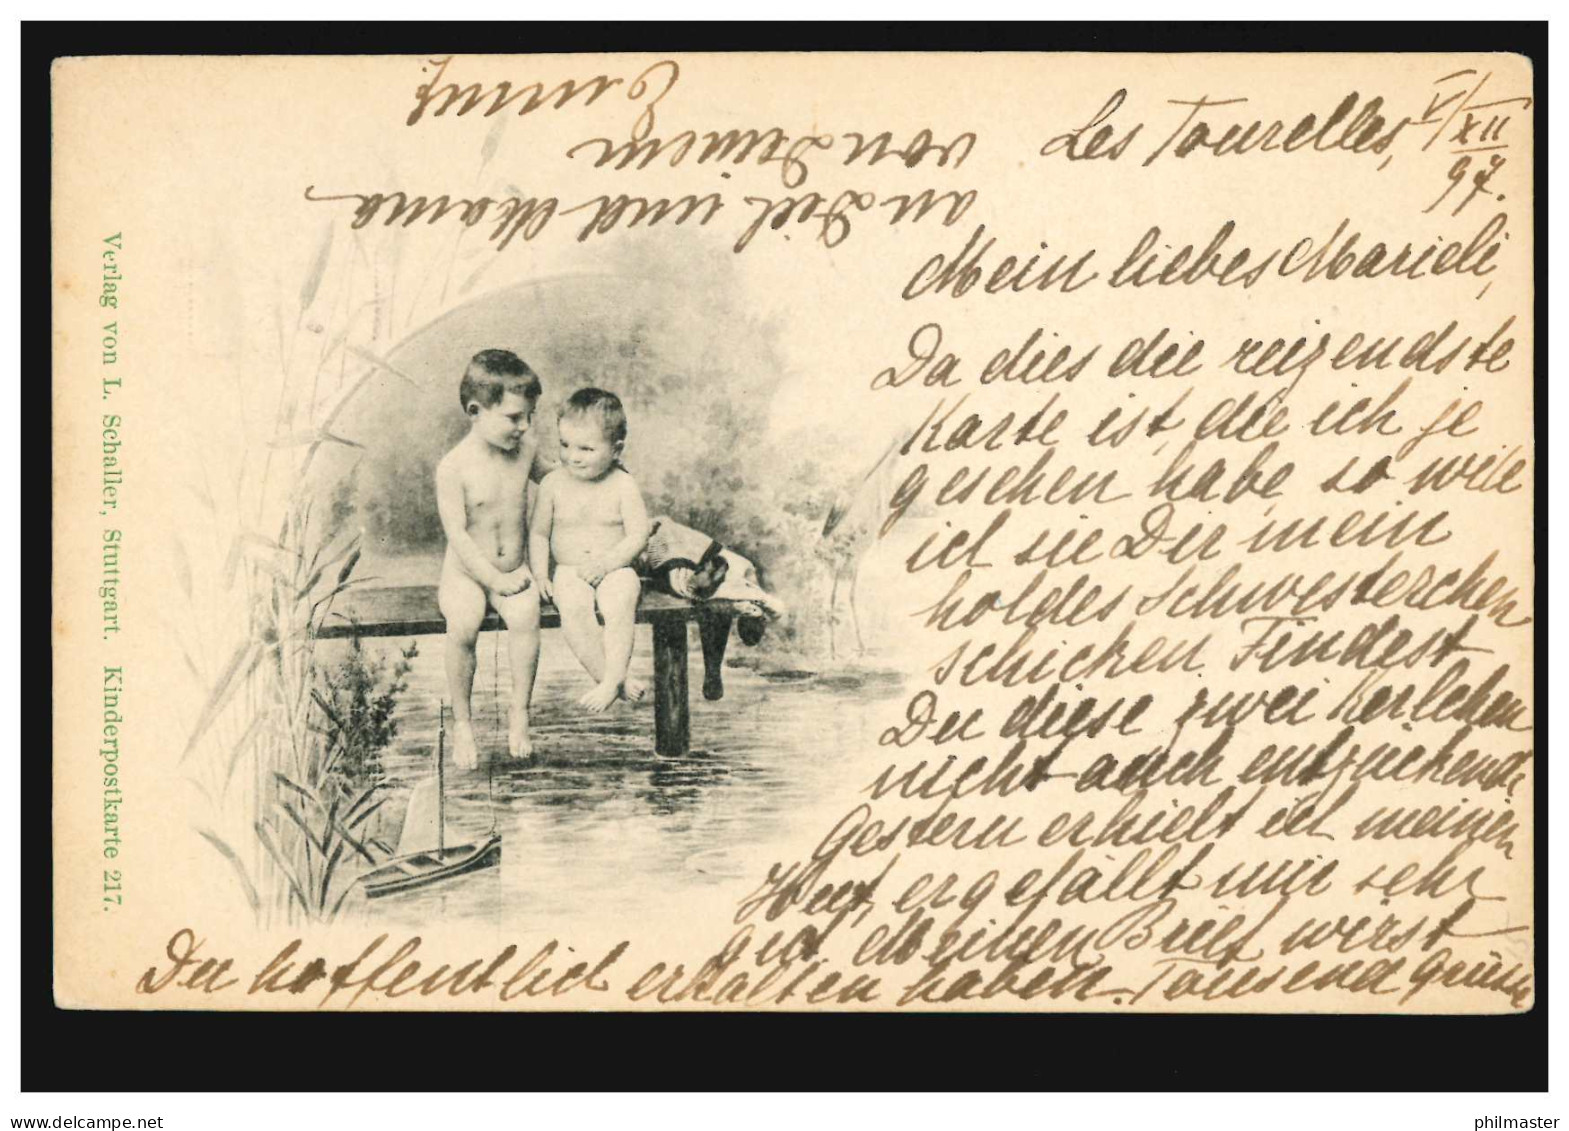 Les Tourelles, V/XII
97.
Mein liebes Marieli,
Da dies die reizendste
Karte ist, die ich je
gesehen habe, so will
ich sie Dir mein
holdes Schwesterchen
schicken. Findest
Du diese zwei Kerlchen
nicht auch entzückend
Gestern erhielt ich meinen
Hut, er gefällt mir sehr
gut. Meinen Brief wirst
Du hoffentlich erhalten haben. Tausend Grüsse
an Dich und Mama
von Deinem
Emmy.
Verlag von L. Schaller, Stuttgart. Kinderpostkarte 217.
www.delcampe.net
philmaster